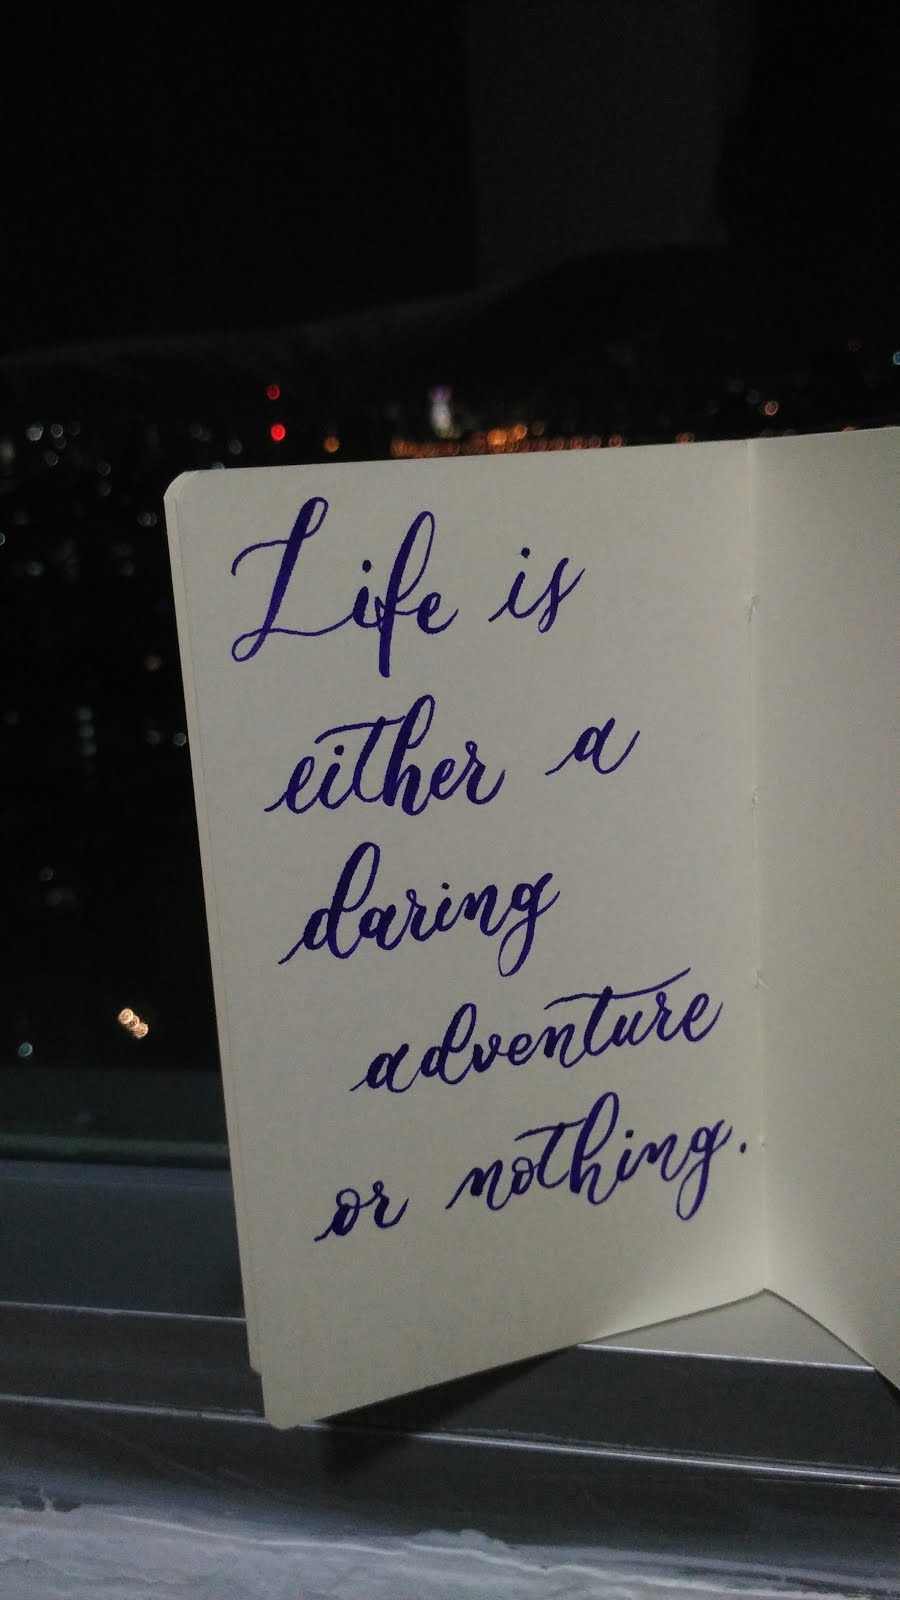 Life is
either a
daring
adventure
or nothing.